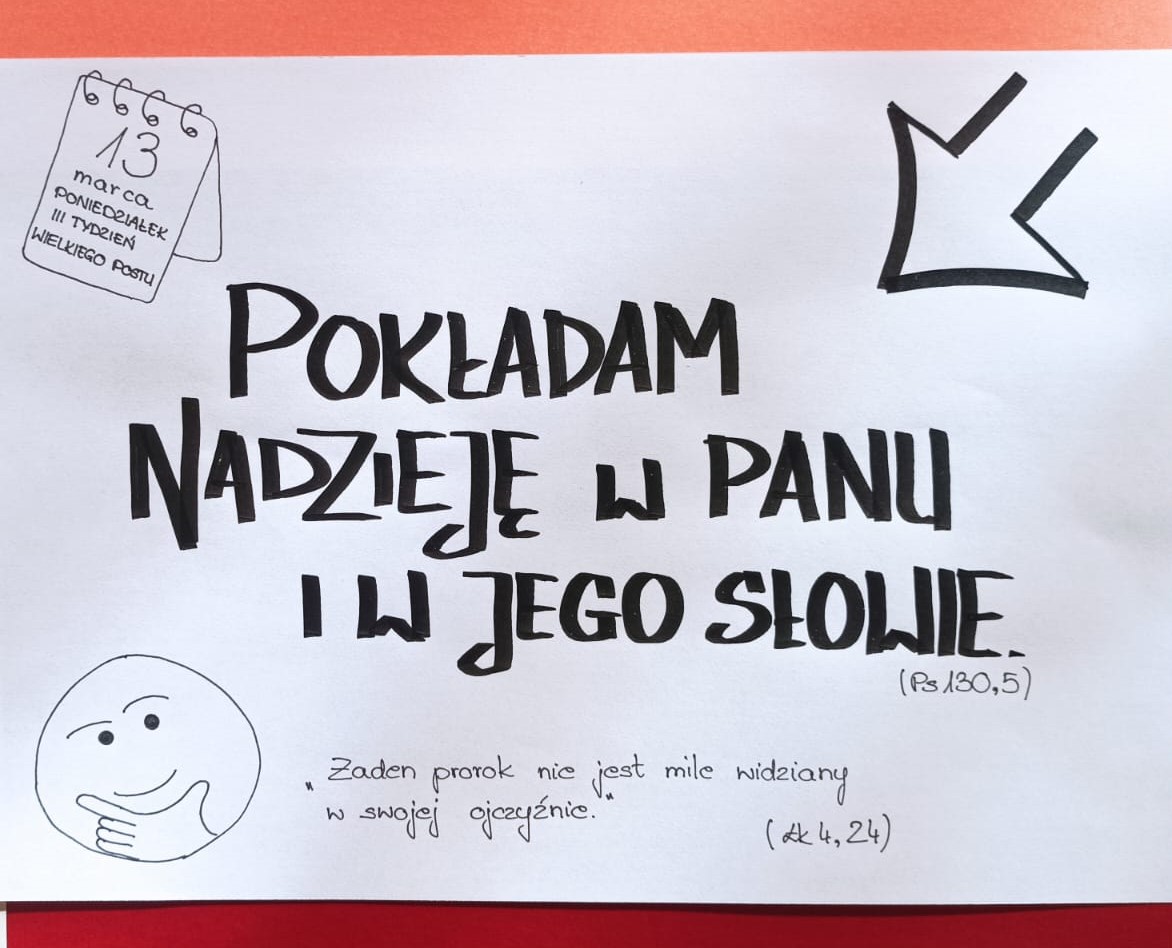 13
marca
PONIEDZIAŁEK
III TYDZIEŃ
WIELKIEGO POSTU
POKŁADAM
NADZIEJĘ W PANU
I W JEGO SŁOWIE.
(Ps 130,5)
„Żaden prorok nie jest mile widziany
w swojej ojczyźnie."
(Łk 4, 24)